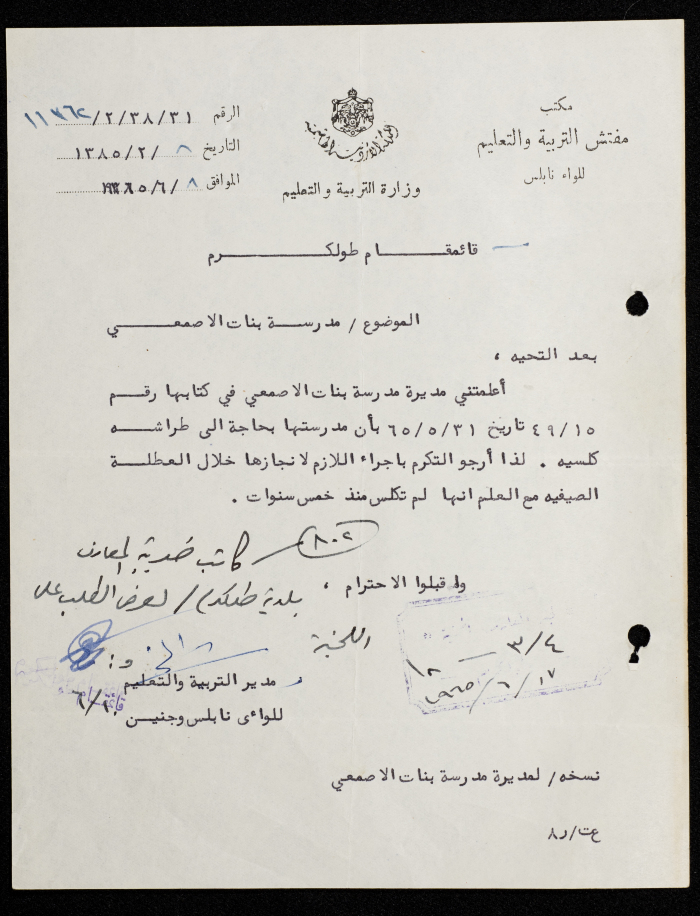 مكتب
مفتش التربية والتعليم
للواء نابلس
المملكة الاردنية الهاشمية
وزارة التربية والتعليم
الرقم ١١٣٦٢/٢/٣٨/٣١
التاريخ ٨ /١٣٨٥/٢
الموافق ٨ /١٩٦٥/٦
قائمقـــام طولكـــرم
الموضوع / مدرســـة بنات الاصمعـــي
بعد التحيه ،
أعلمتني مديرة مدرسة بنات الاصمعي في كتابها رقـم
٤٩/١٥ تاريخ ٦٥/٥/٣١ بأن مدرستها بحاجة الى طراشـه
كلسيه . لذا أرجو التكرم باجراء اللازم لانجازها خلال العطلـة
الصيفيه مع العلم انها لم تكلس منذ خمس سنوات .
٨٠٢
كاتب ضريبة المعارف
واقبلوا الاحترام ،
بلدية طولكرم / لعرض الطلب على
اللجنة
٣/٤ — ١٢
١٩٦٥/٦/١٧
مدير التربية والتعليم
٦/١٠
للوائى نابلس وجنيـن
نسخه / لمديرة مدرسة بنات الاصمعي
عت/ر٨